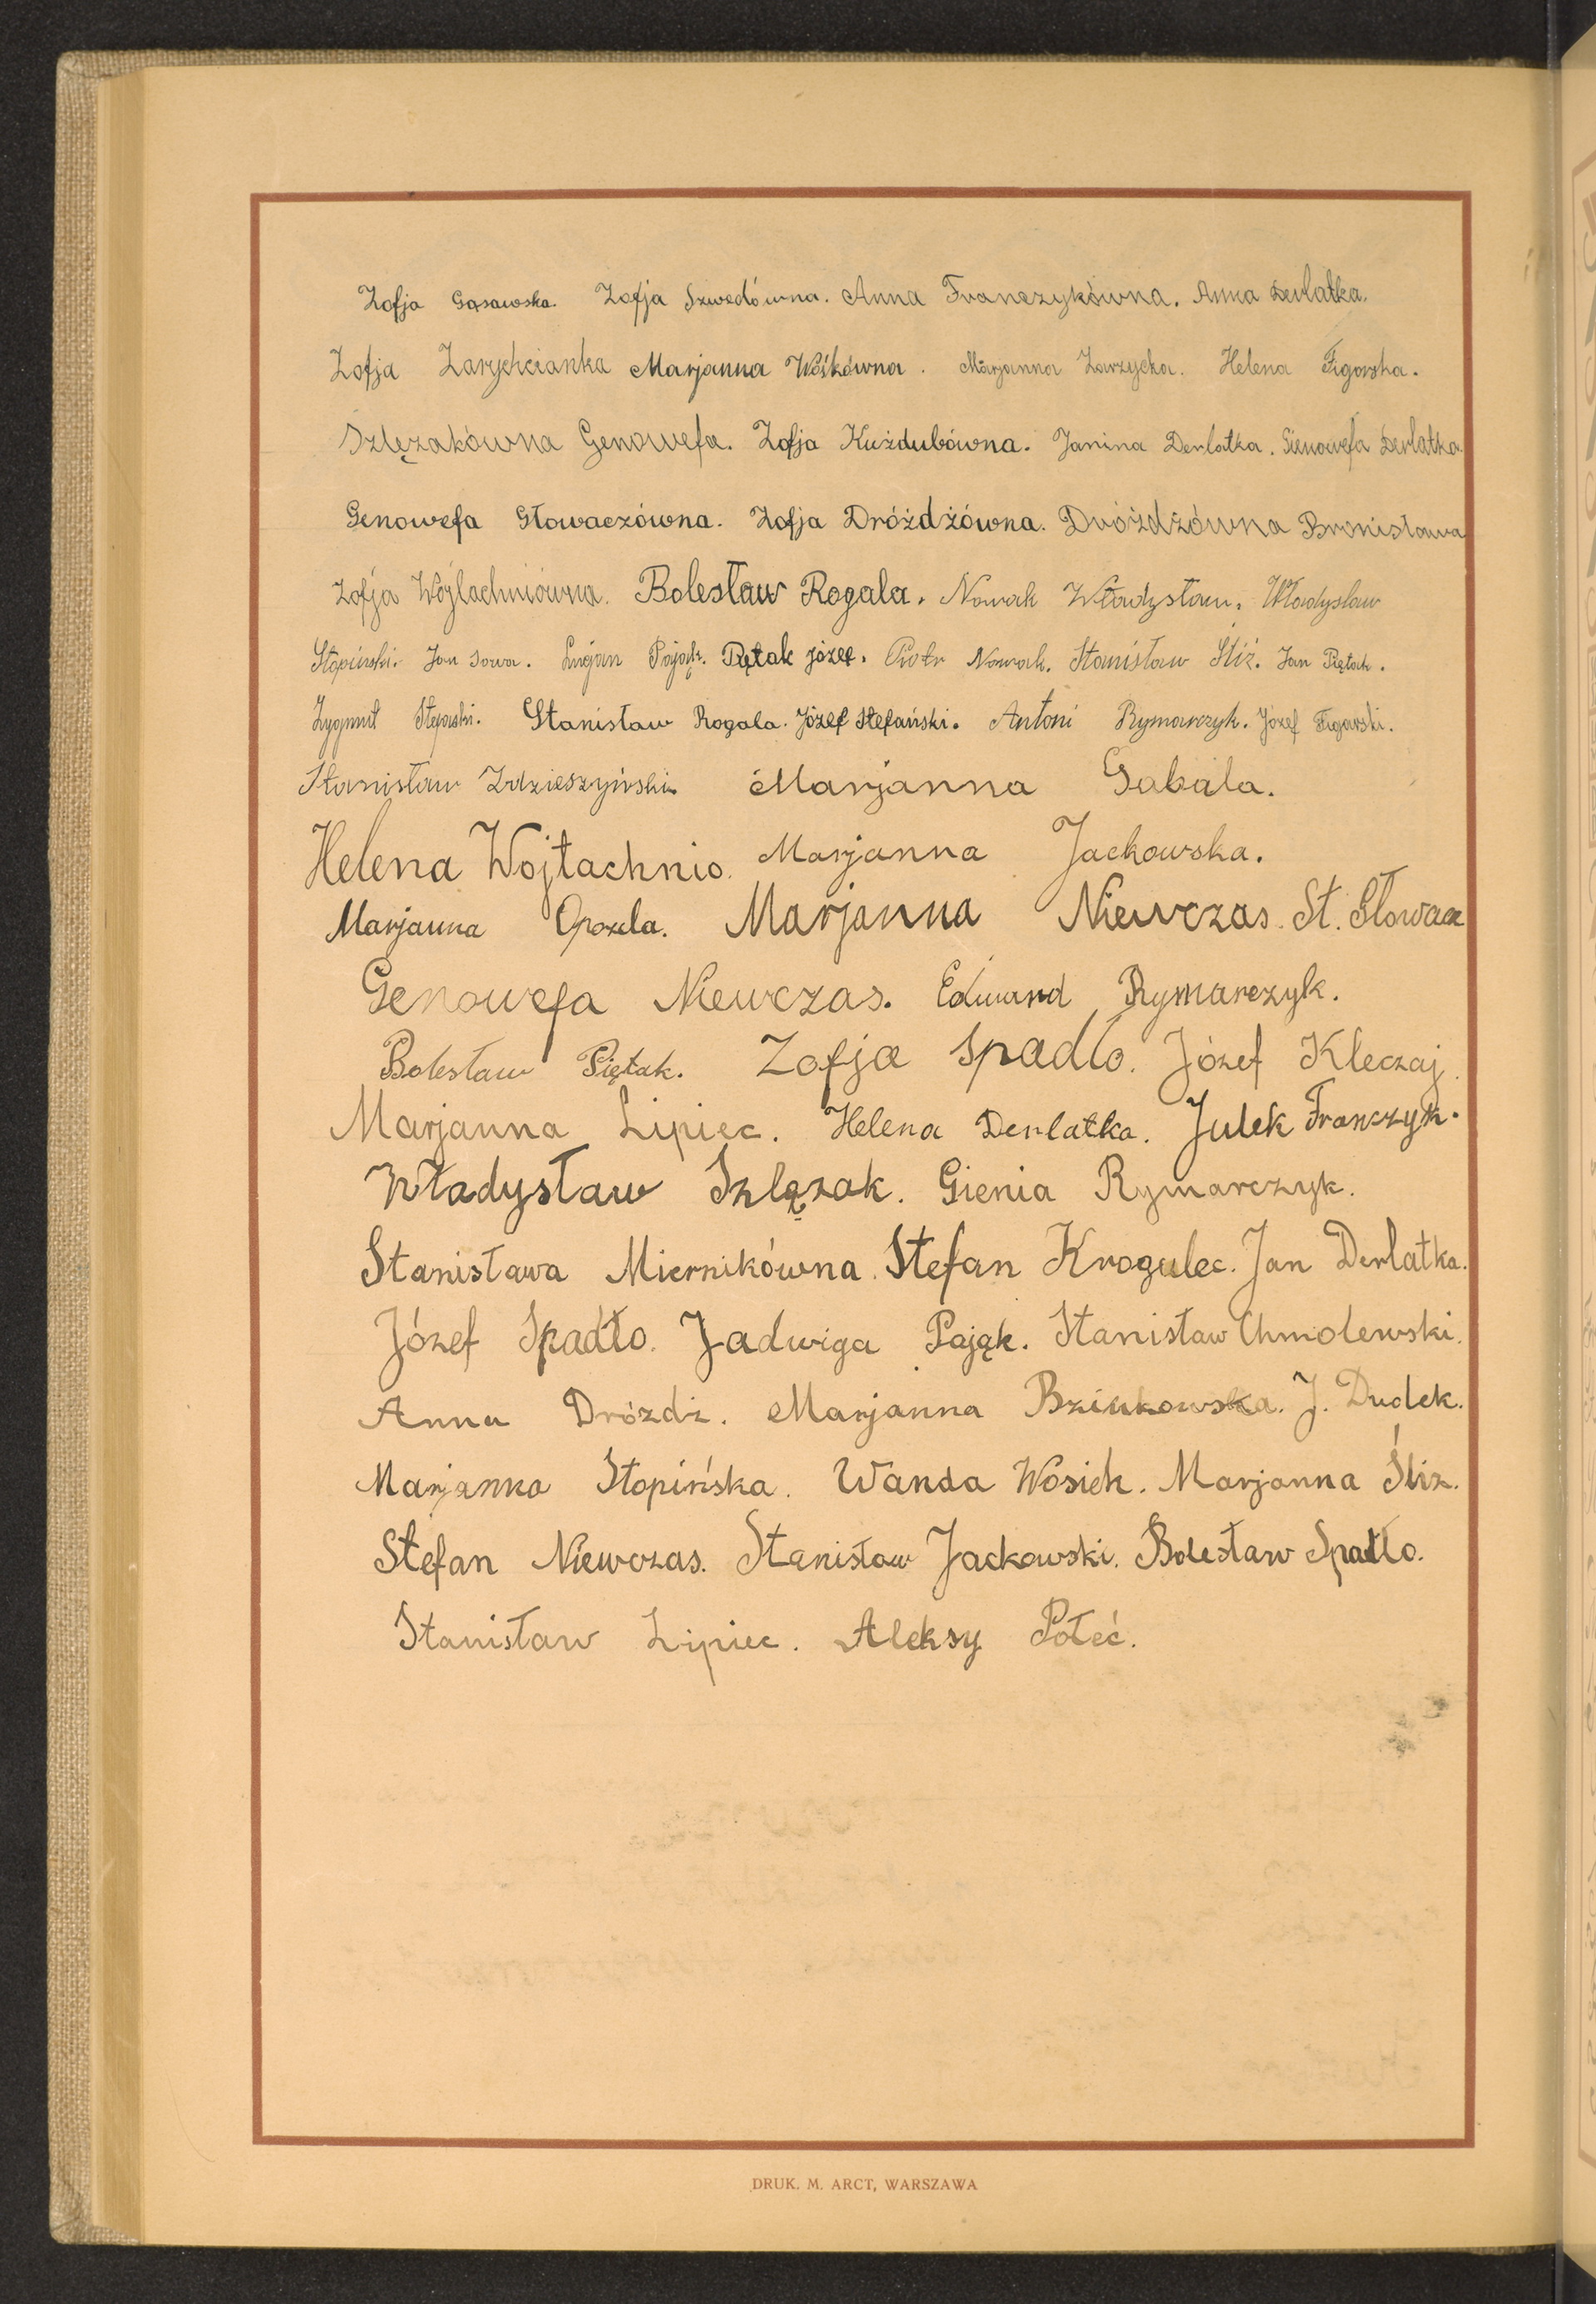 Zofja Gąsawska. Zofja Szwedówna. Anna Franczykówna. Anna Derlatka.
Zofja Zarychcianka Marjanna Wośkówna. Marjanna Zarzycka. Helena Figarska.
Szlęzakówna Genowefa. Zofja Kużdubówna. Janina Derlatka. Gienowefa Derlatka.
Genowefa Słowaczówna. Zofja Dróżdżówna. Dróżdżówna Bronisława
Zofja Wójtachniówna. Bolesław Rogala. Nowak Władysław. Władysław
Stopiński. Jan Sowa. Lucjan Pająk. Piętak józef. Piotr Nowak. Stanisław Śliż. Jan Piętak.
Zygmut Stefański. Stanisław Rogala. Józef Stefański. Antoni Rymarczyk. Józef Figarski.
Stanisław Zdzieszyński. Marjanna Gabała.
Helena Wojtachnio. Marjanna Jackowska.
Marjanna Opozda. Marjanna Niewczas. St. Słowacz
Genowefa Niewczas. Edward Rymarczyk.
Bolesław Piętak. Zofja Spadło. Józef Kleczaj.
Marjanna Lipiec. Helena Derlatka. Julek Franczyk.
Władysław Szlązak. Gienia Rymarczyk.
Stanisława Miernikówna. Stefan Krogulec. Jan Derlatka.
Józef Spadło. Jadwiga Pająk. Stanisław Chmolewski.
Anna Dróżdż. Marjanna Bzinkowska. J. Dudek.
Marjanna Stopińska. Wanda Wosiek. Marjanna Śliz.
Stefan Niewczas. Stanisław Jackowski. Bolesław Spadło.
Stanisław Lipiec. Aleksy Połeć.
DRUK. M. ARCT, WARSZAWA